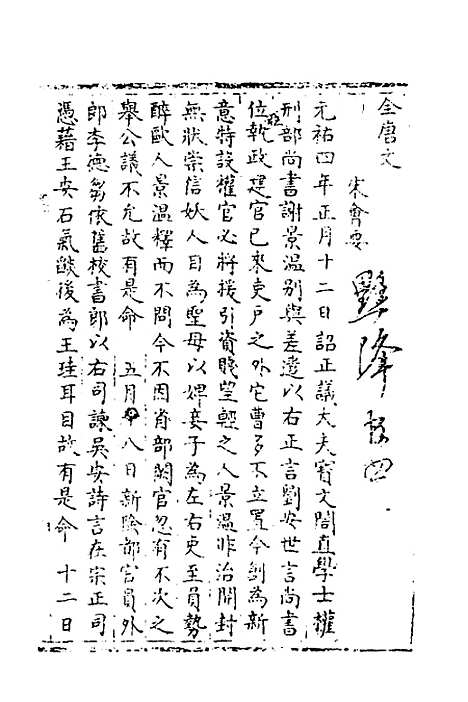 全唐文
宋會要
黜降 四
元祐四年正月十二日詔正議大夫寶文閣直學士權
刑部尚書謝景温别與差遣以右正言劉安世言尚書
位執政建官已來吏户之外它曹多不立置今創為新
意特設權官必將援引資賤望輕之人景温非治開封
無狀崇信妖人目為聖母以婢妾子為左右吏至員勢
醉歐人景温釋而不問今不因省部闕官忽有不次之
舉公議不允故有是命 五月十八日新除都官員外
郎李德芻依舊校書郎以右司諫吳安詩言在宗正司
憑藉王安石氣燄後為王珪耳目故有是命 十二日